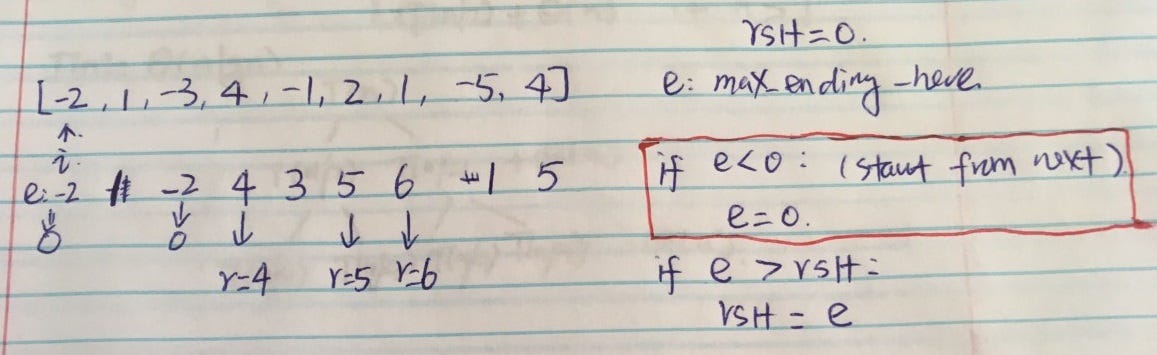 rslt=0.
[-2, 1, -3, 4, -1, 2, 1, -5, 4]
e: max_ending_here.
i.
e: -2 1 -2 4 3 5 6 1 5
0 0
r=4 r=5 r=6
if e<0: (start from next)
e=0.
if e > rslt:
rslt = e